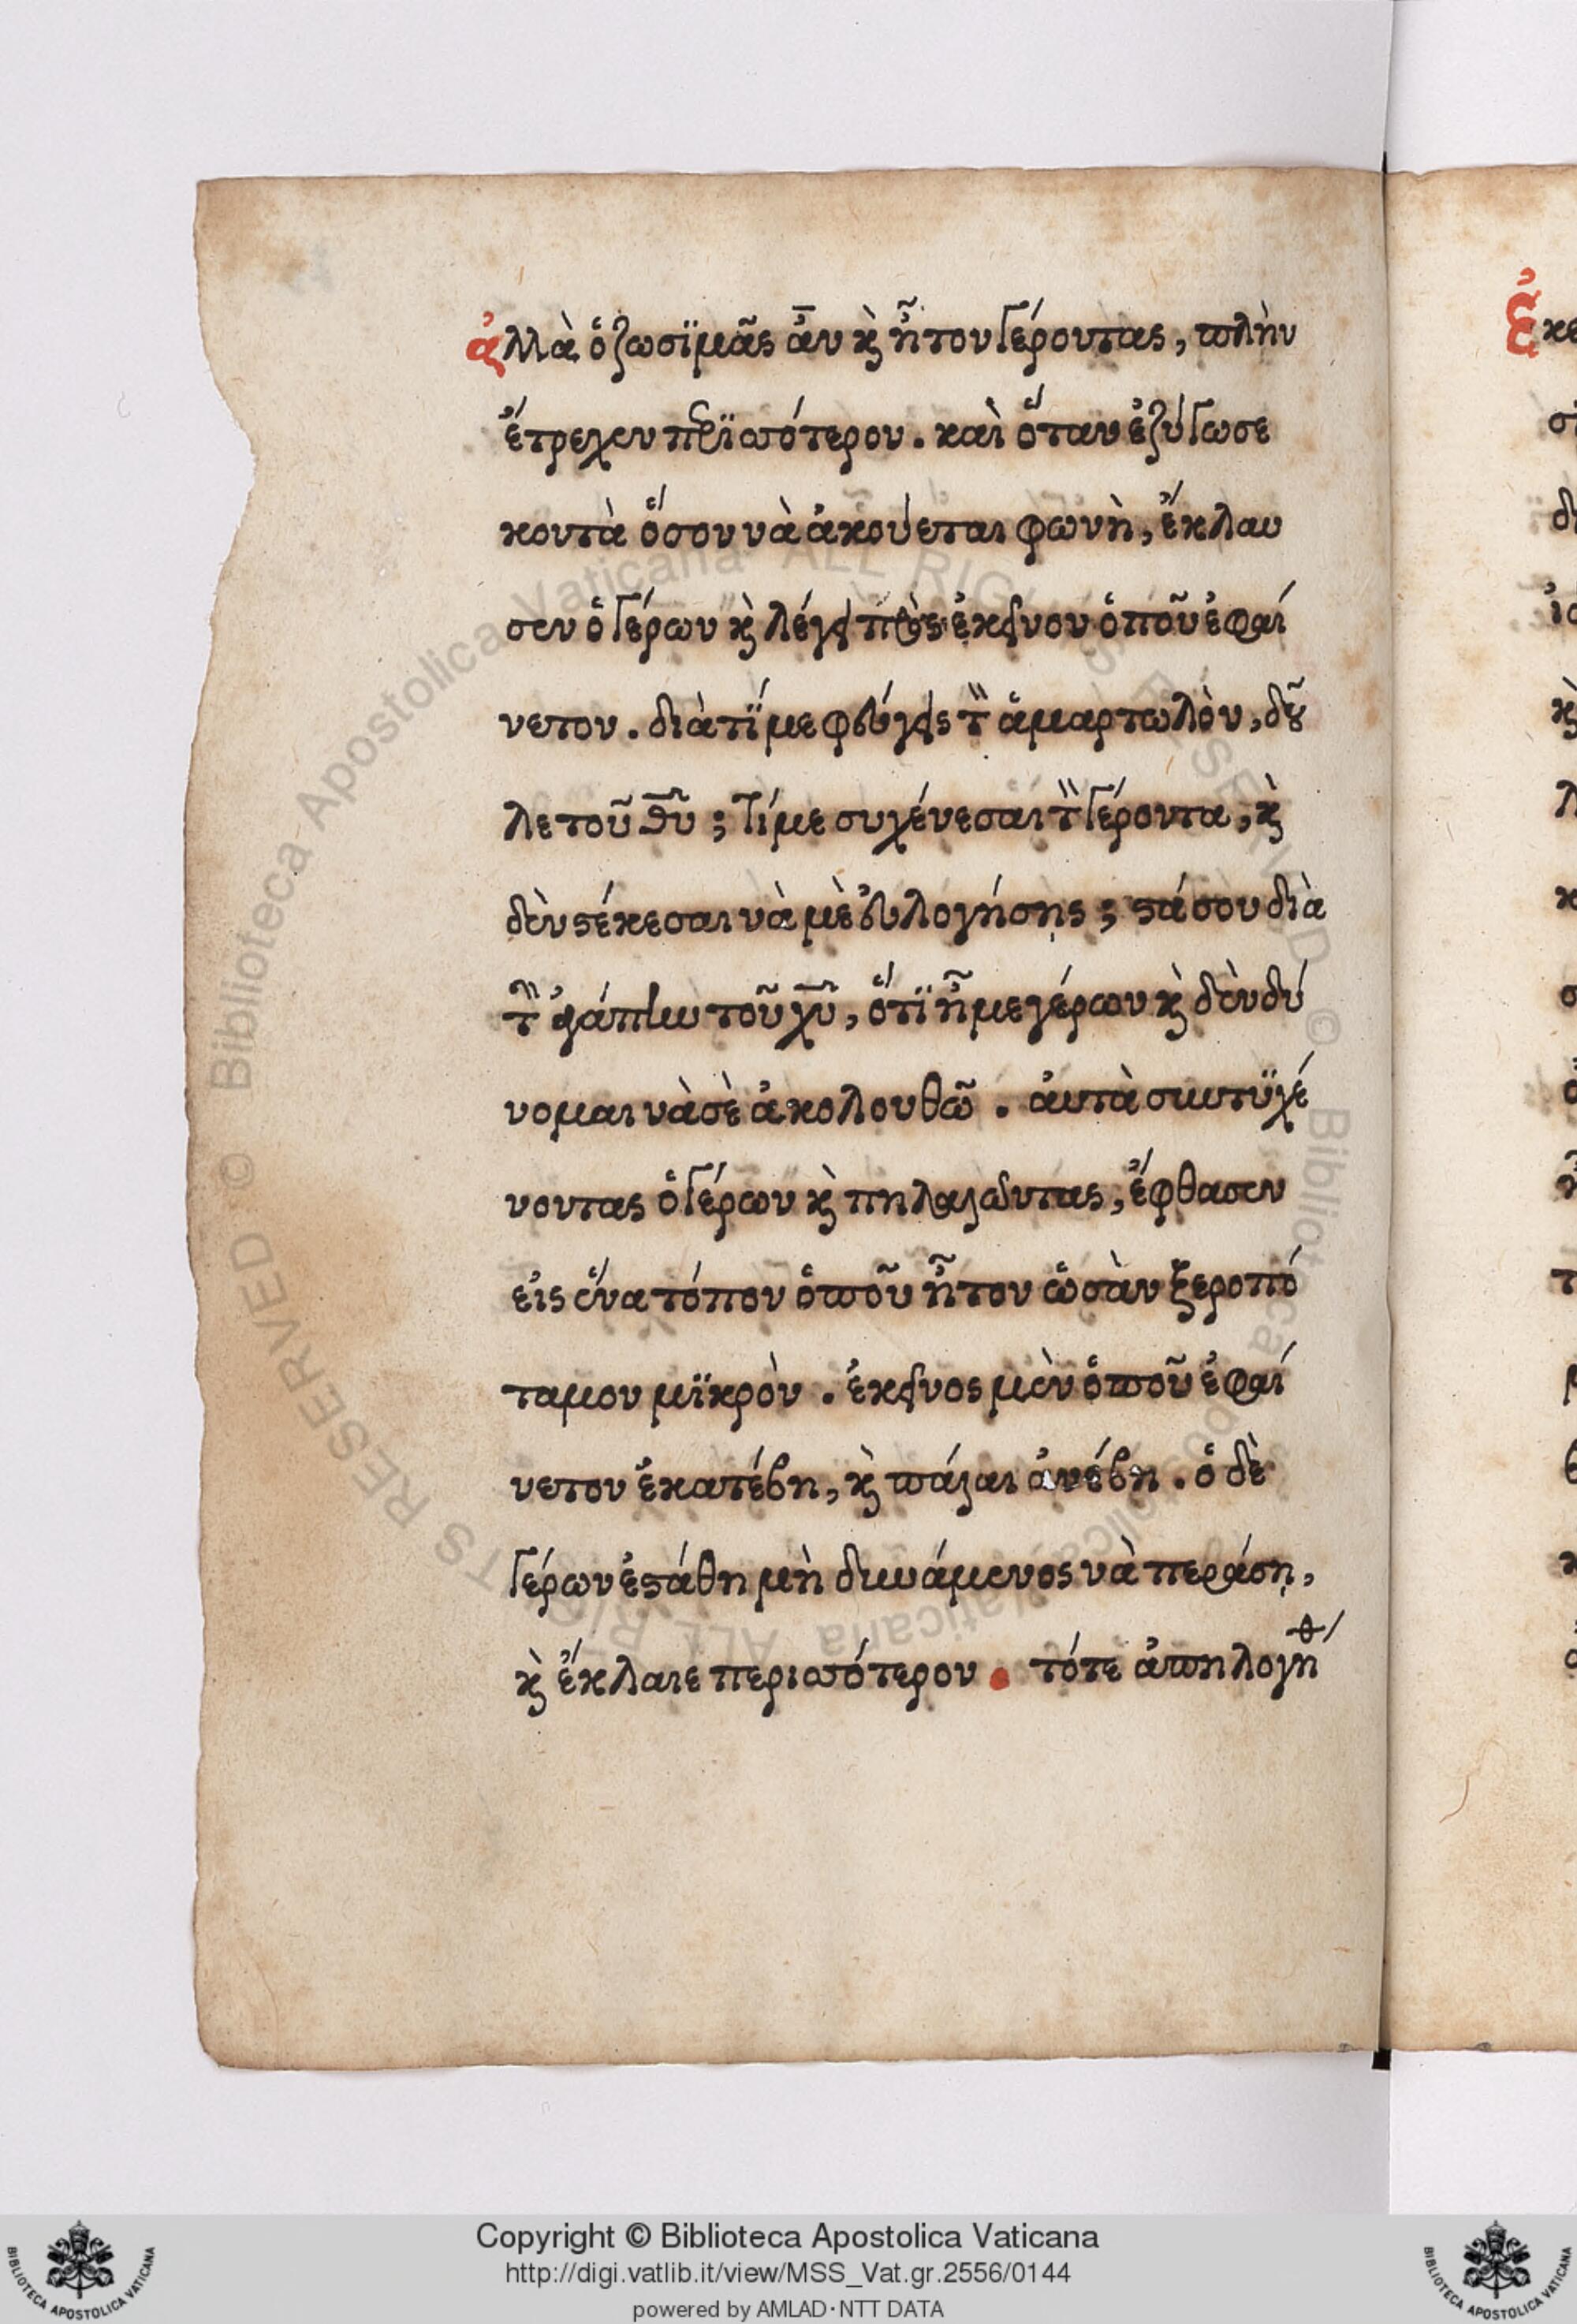 ἀλλὰ ὁ ζωσϊμᾶς ἂν κ̀ ἦτον γέροντας, πλὴν
ἔτρεχεν π̅ε̅ρϊσσότερον. καὶ ὅταν ἐζύγωσε
κοντὰ ὅσον νὰ ἀκούεται φωνὴ, ἔκλαυ
σεν ὁ γέρων κ̀ λέγει πρὸς ἐκεῖνον ὁποῦ ἐφαί
νετον. διὰ τί με φεύγεις τὸν ἁμαρτωλὸν, δοῦ
λε τοῦ θῦ; τί με συχένεσαι τὸν γέροντα, κ̀
δὲν στέκεσαι νὰ μὲ εὐλογήσῃς; στάσου διὰ
τὴν ἀγάπην τοῦ χῦ, ὅτϊ ἦμε γέρων κ̀ δὲν δύ
νομαι νὰ σὲ ἀκολουθῶ. ἀυτὰ συντϋχέ
νοντας ὁ γέρων κ̀ πηλαλώντας, ἔφθασεν
εἰς ἕνα τόπον ὁποῦ ἦτον ὡσὰν ξεροπό
ταμον μϊκρὸν. ἐκεῖνος μὲν ὁποῦ ἐφαί
νετον ἐκατέβη, κ̀ πάλαι ἀνέβη. ὁ δὲ
γέρων ἐστάθη μὴ δυνάμενος νὰ περάσῃ,
κ̀ ἔκλαιε περισσότερον. τότε ἀπηλογήθ
Copyright © Biblioteca Apostolica Vaticana
http://digi.vatlib.it/view/MSS_Vat.gr.2556/0144
powered by AMLAD·NTT DATA